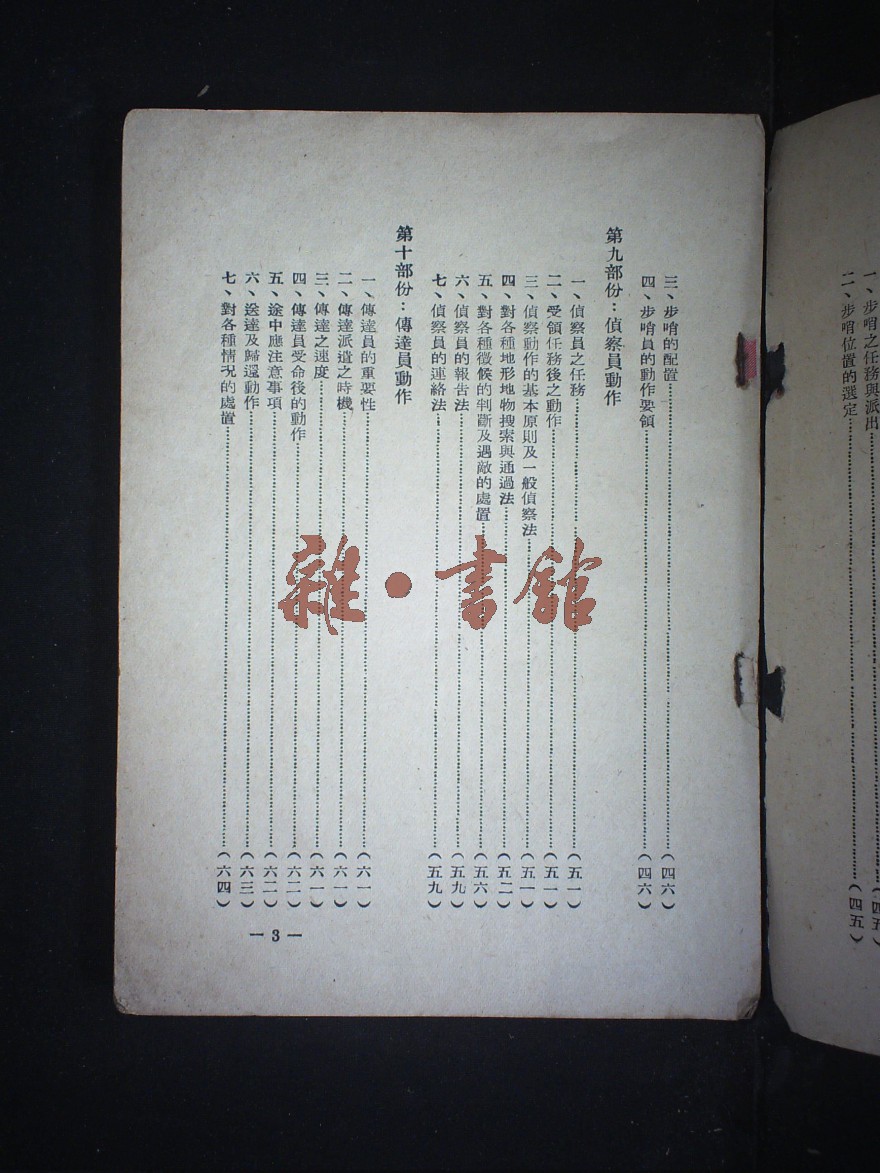 一、步哨之任務與派出……(四五)
二、步哨位置的選定……(四五)
三、步哨的配置……(四六)
四、步哨員的動作要領……(四六)
第九部份：偵察員動作
一、偵察員之任務……(五一)
二、受領任務後之動作……(五一)
三、偵察動作的基本原則及一般偵察法……(五一)
四、對各種地形地物搜索與通過法……(五二)
五、對各種徵候的判斷及遇敵的處置……(五六)
六、偵察員的報告法……(五九)
七、偵察員的連絡法……(五九)
第十部份：傳達員動作
一、傳達員的重要性……(六一)
二、傳達派遣之時機……(六一)
三、傳達之速度……(六一)
四、傳達員受命後的動作……(六二)
五、途中應注意事項……(六二)
六、送達及歸還動作……(六三)
七、對各種情况的處置……(六四)
— 3 —
雜·書館